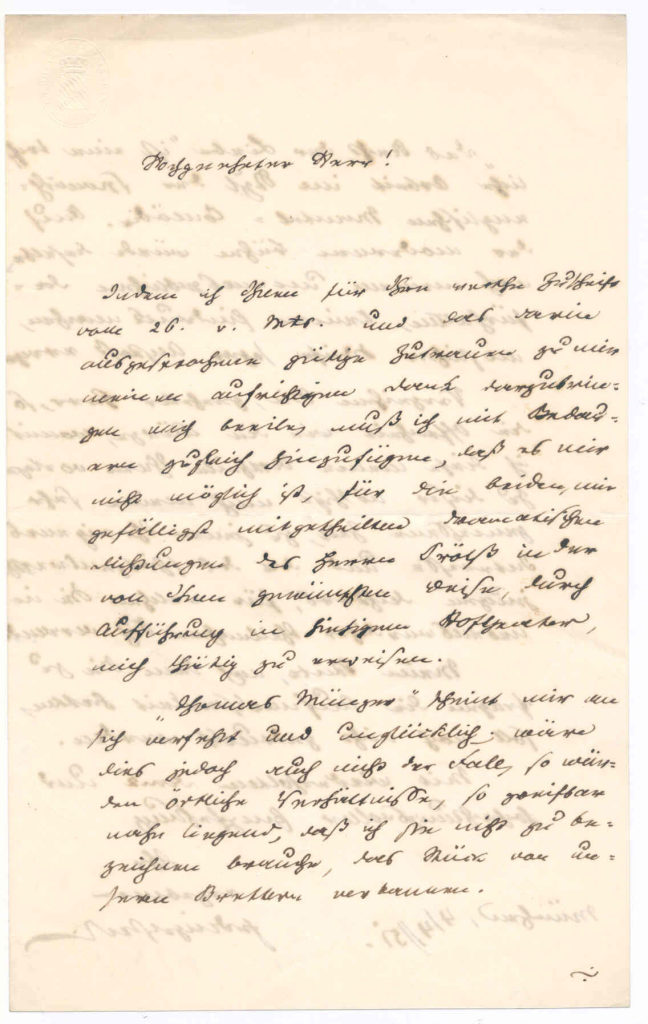 Hochgeehrter Herr!
Indem ich Ihnen für Ihre werthe Zuschrift
vom 26. v. Mts. und das darin
ausgesprochene gütige Zutrauen zu mir
meinen aufrichtigen Dank darzubrin-
gen mich beeile, muß ich mit Bedau-
ern zugleich hinzufügen, daß es mir
nicht möglich ist, für die beiden, mir
gefälligst mitgetheilten dramatischen
Dichtungen des Herrn Prölß in der
von Ihnen gewünschten Weise, durch
Aufführung im hiesigen Hoftheater,
mich thätig zu erweisen.
"Thomas Münzer" scheint mir an
sich verfehlt und unglücklich; wäre
dies jedoch auch nicht der Fall, so wür-
den örtliche Verhältnisse, so greifbar
nahe liegend, daß ich sie nicht zu be-
zeichnen brauche, das Stück von un-
sern Brettern verbannen.